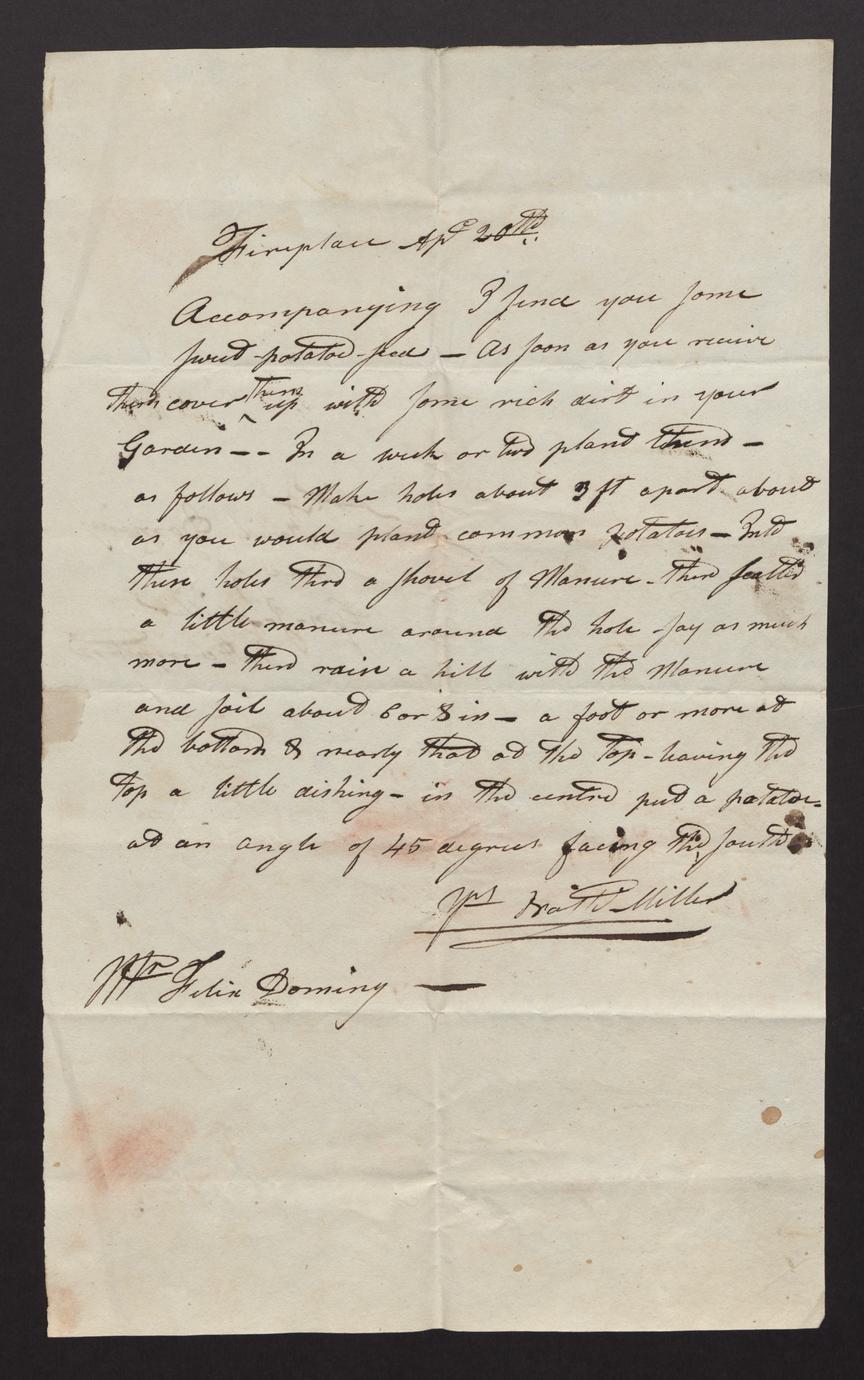 Fireplace Apl 20th
Accompanying I send you some
sweet-potatoe-seed — As soon as you receive
them cover them up with some rich dirt in your
Garden -- In a week or two plant them —
as follows — Make holes about 3 ft apart about
as you would plant common potatoes — Into
these holes thro a shovel of Manure - then scatter
a little manure around the hole - say as much
more — then raise a hill with the Manure
and soil about 6 or 8 in — a foot or more at
the bottom & nearly that at the Top - leaving the
Top a little dishing - in the centre put a potatoe -
at an angle of 45 degrees facing the South
Yrs Miller
Mr Felix Doming —